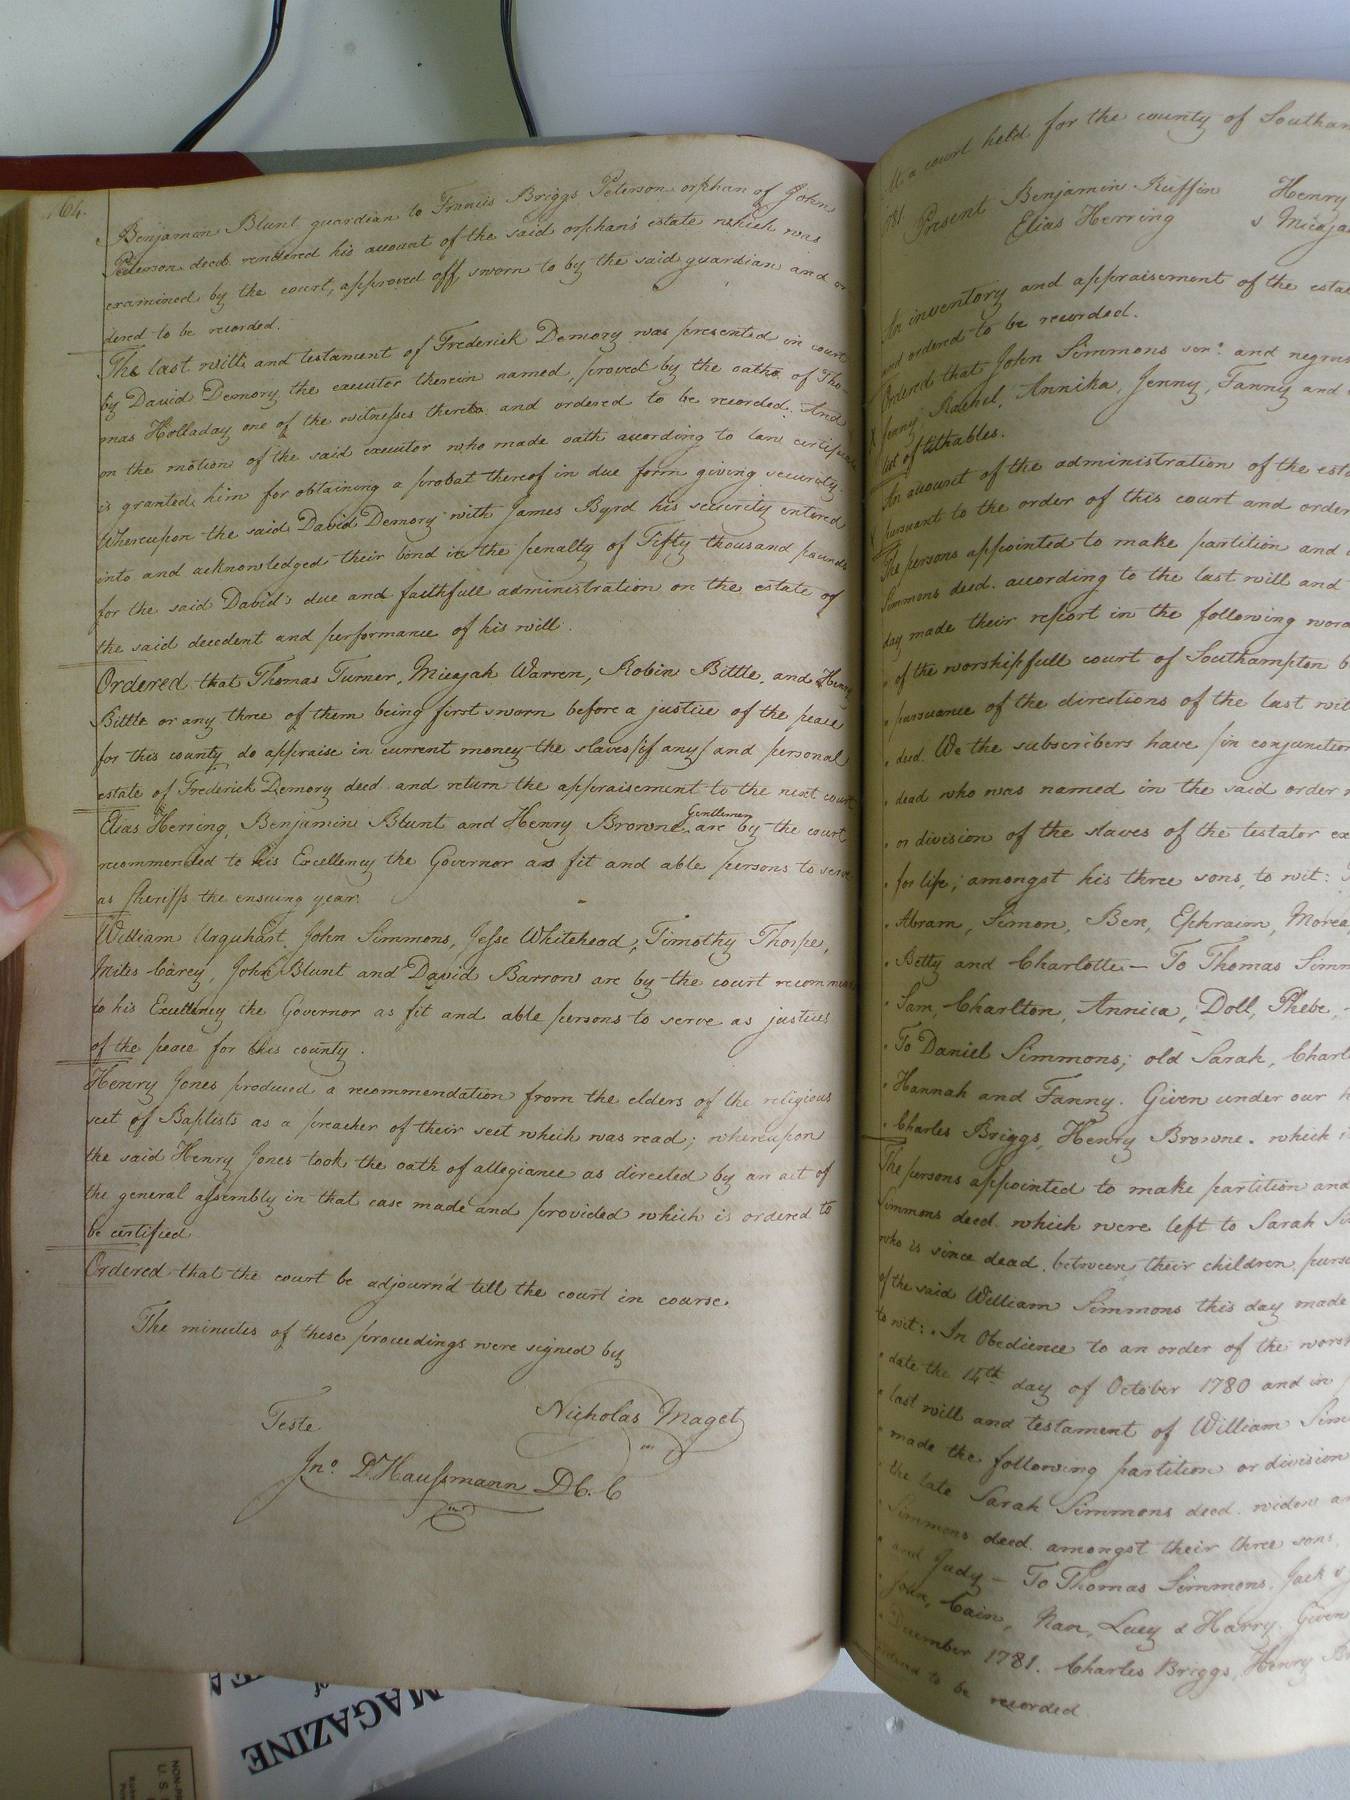 164.
Benjamin Blunt guardian to Francis Briggs Peterson orphan of John
Peterson decd. rendered his account of the said orphan's estate which was
examined by the court, approved off, sworn to by the said guardian and or
dered to be recorded.
The last will and testament of Frederick Demory was presented in court
by David Demory the executor therein named, proved by the oaths of Tho-
mas Holladay one of the witnesses thereto and ordered to be recorded. And
on the motion of the said executor who made oath according to law certificate
is granted him for obtaining a probat thereof in due form giving security.
Whereupon the said David Demory with James Byrd his security entered
into and acknowledged their bond in the penalty of Fifty thousand pounds
for the said David's due and faithfull administration on the estate of
the said decedent and performance of his will.
Ordered that Thomas Turner, Micajah Warren, Robin Bittle, and Henry
Bittle or any three of them being first sworn before a justice of the peace
for this county do appraise in current money the slaves (if any) and personal
estate of Frederick Demory decd. and return the appraisement to the next court
Elias Herring, Benjamin Blunt and Henry Browne Gentlemen are by the court
recommended to his Excellency the Governor as fit and able persons to serve
as Sheriffs the ensuing year.
William Urquhart, John Simmons, Jesse Whitehead, Timothy Thorpe,
Miles Carey, John Blunt and David Barrow are by the court recommen
to his Excellency the Governor as fit and able persons to serve as justices
of the peace for this county.
Henry Jones produced a recommendation from the elders of the religious
sect of Baptists as a preacher of their sect which was read; whereupon
the said Henry Jones took the oath of allegiance as directed by an act of
the general assembly in that case made and provided which is ordered to
be certified
Ordered that the court be adjourn'd till the court in course.
The minutes of these proceedings were signed by
Nicholas Maget
Teste
Jno. D. Haussmann D C. C
At a court held for the county of Southam
Present Benjamin Ruffin Henry
Elias Herring & Micaja
An inventory and appraisement of the esta
and ordered to be recorded.
Ordered that John Simmons senr. and negroes
Rachel, Annika, Jenny, Fanny and
list of tithables.
An account of the administration of the esta
pursuant to the order of this court and order
The persons appointed to make partition and
Simmons decd. according to the last will and
day made their report in the following word
of the worshipfull court of Southampton
pursuance of the directions of the last wil
decd. We the subscribers have (in conjunction
dead who was named in the said order
or division of the slaves of the testator ex
for life; amongst his three sons, to wit:
Abram, Simon, Ben, Ephraim,
Betty and Charlotte — To Thomas Simm
Sam, Charlton, Annica, Doll, Phebe,
To Daniel Simmons; old Sarah, Charl
Hannah and Fanny. Given under our h
Charles Briggs, Henry Browne. which
The persons appointed to make partition and
Simmons decd. which were left to Sarah Si
who is since dead, between their children, purs
of the said William Simmons this day made
to wit: In Obedience to an order of the wors
date the 14th day of October 1780 and in
last will and testament of William Sim
made the following partition or division
the late Sarah Simmons decd. widow a
Simmons decd. amongst their three sons,
and Judy — To Thomas Simmons, Jack &
Cain, Nan, Lucy & Harry. Given
December 1781. Charles Briggs, Henry Br
ordered to be recorded
MAGAZINE
of
U. S.